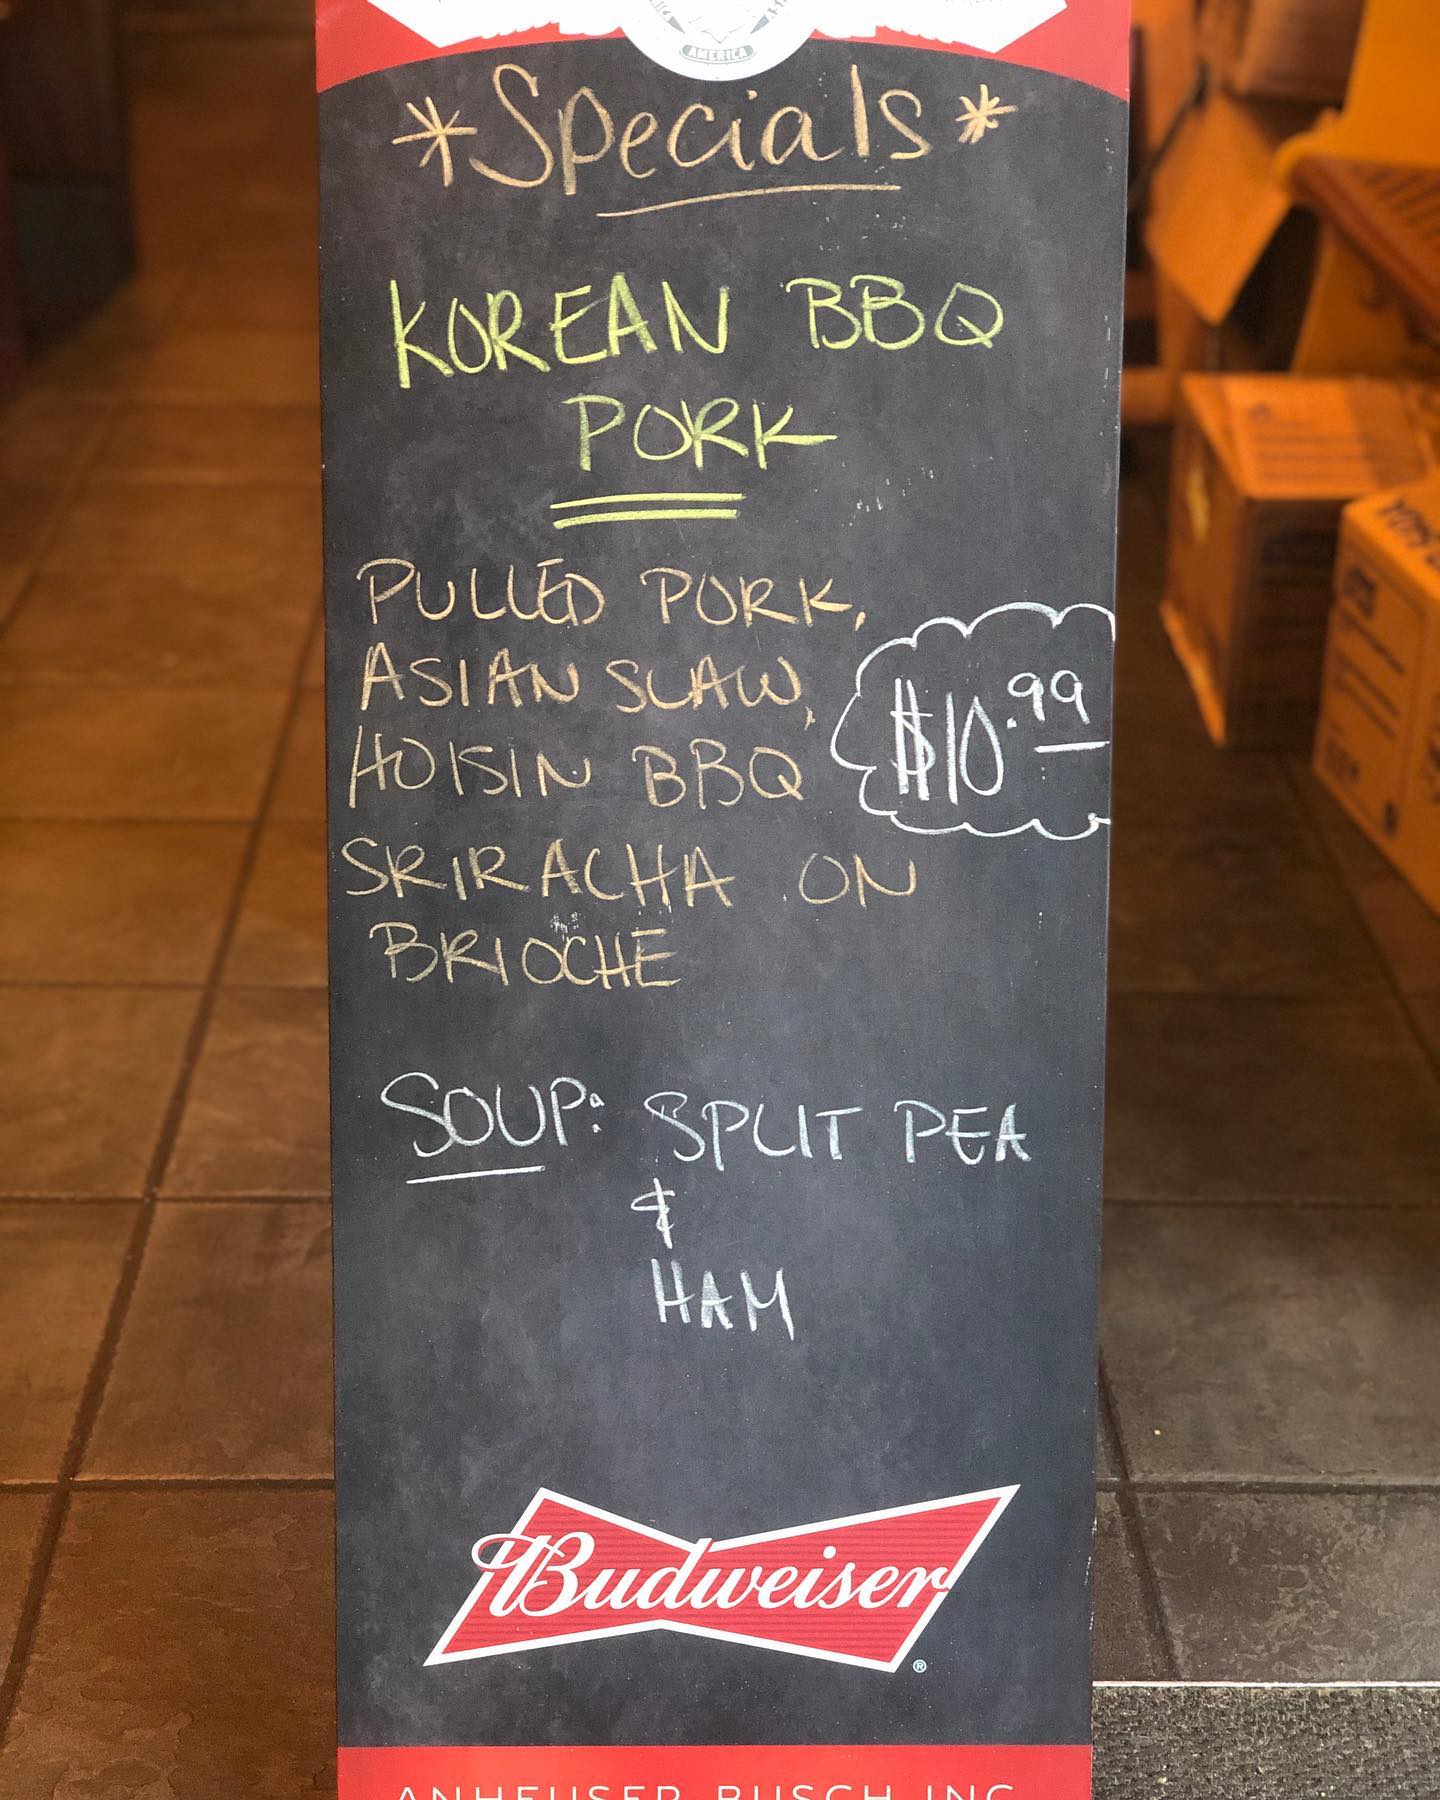 AMERICA
*Specials*
KOREAN BBQ
PORK
PULLED PORK,
ASIAN SLAW,
HOISIN BBQ
SRIRACHA ON
BRIOCHE
$10.99
SOUP: SPLIT PEA
&
HAM
Budweiser®
ANHEUSER BUSCH INC